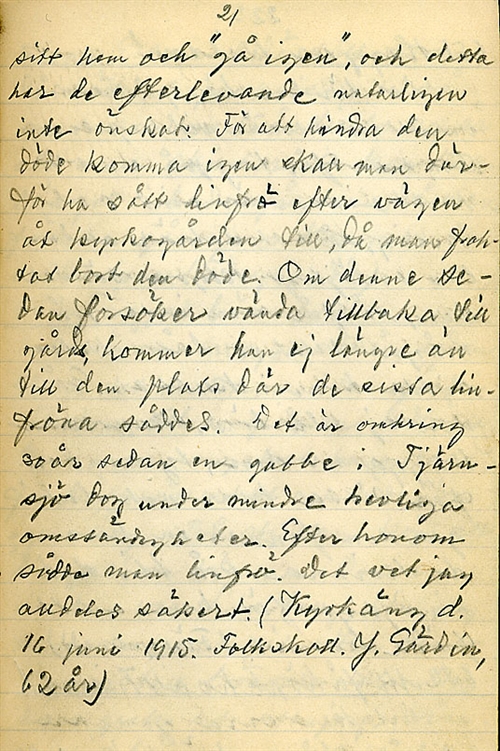 21
sitt hem och "gå igen", och detta
har de efterlevande naturligen
inte önskat. För att hindra den
döde komma igen skall man där-
för ha sått linfrö efter vägen
åt kyrkogården till, då man frak-
tat bort den döde. Om denne se-
dan försöker vända tillbaka till
gård, kommer han ej längre än
till den plats där de sista lin-
fröna såddes. Det är omkring
30 år sedan en gubbe i Tjärn-
sjö dog under mindre hevliga
omständigheter. Efter honom
sådde man linfrö. Det vet jag
alldeles säkert. (Kyrkäng d.
16 juni 1915. Folkskoll. J. Gärdin,
62 år)